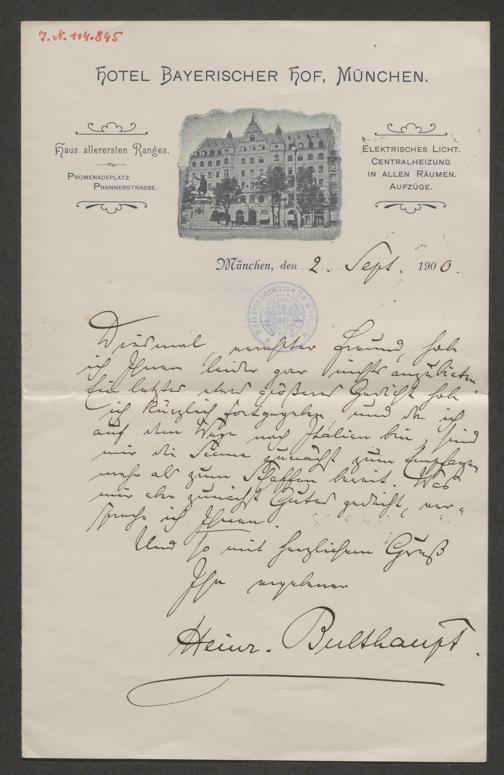 J. N. 114.845
Hotel Bayerischer Hof, München.
Haus allerersten Ranges.
Promenadeplatz
Prannerstrasse.
Elektrisches Licht.
Centralheizung
in allen Räumen.
Aufzüge.
München, den 2. Sept. 1900.
Diesmal, verehrter Freund, hab
ich Ihnen leider gar nichts anzubieten.
Ein letztes etwas größeres Gedicht hab
ich kürzlich fortgegeben und da ich
auf dem Wege nach Italien bin, sind
mir die Sinne zunächst zum Empfangen
mehr als zum Schaffen bereit. Was
mir aber zunächst Gutes gedeiht, ver-
spreche ich Ihnen.
Und so mit herzlichem Gruß
Ihr ergebener
Heinr. Bulthaupt.